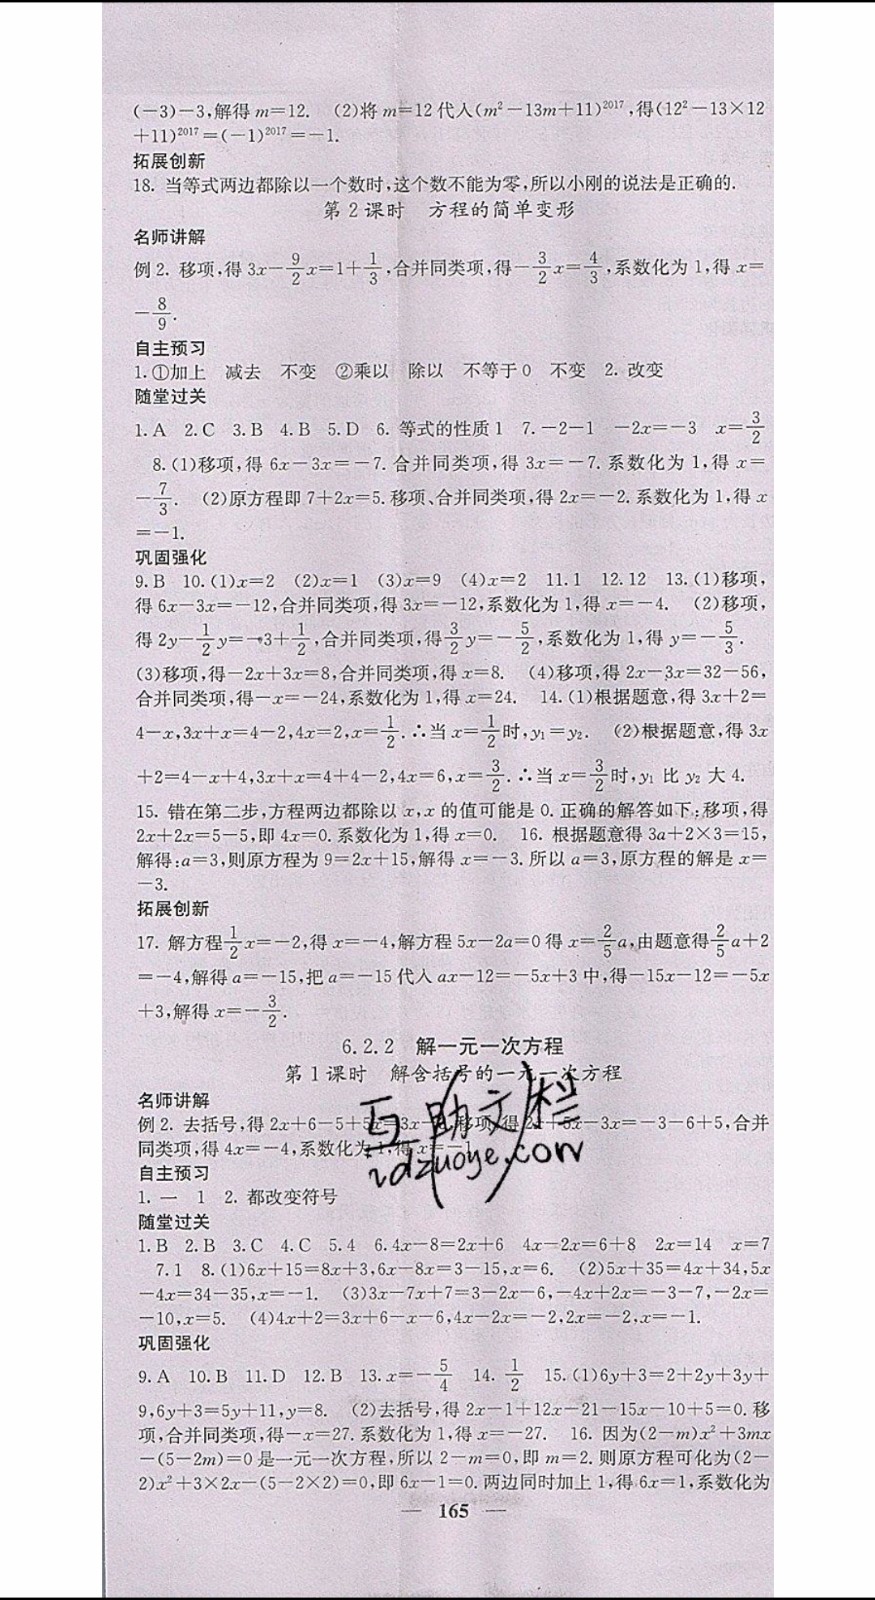 (-3)-3,解得 m=12. (2)将 m=12 代入(m²-13m+11)²⁰¹⁷,得(12²-13×12
+11)²⁰¹⁷=(-1)²⁰¹⁷=-1.
拓展创新
18. 当等式两边都除以一个数时,这个数不能为零,所以小刚的说法是正确的.
第2课时 方程的简单变形
名师讲解
例2. 移项,得 3x-9/2x=1+1/3,合并同类项,得-3/2x=4/3,系数化为1,得 x=
-8/9.
自主预习
1.①加上 减去 不变 ②乘以 除以 不等于0 不变 2. 改变
随堂过关
1.A 2.C 3.B 4.B 5.D 6. 等式的性质1 7.-2-1 -2x=-3 x=3/2
8.(1)移项,得 6x-3x=-7.合并同类项,得 3x=-7.系数化为1,得 x=
-7/3. (2)原方程即 7+2x=5.移项、合并同类项,得 2x=-2.系数化为1,得 x
=-1.
巩固强化
9.B 10.(1)x=2 (2)x=1 (3)x=9 (4)x=2 11.1 12.12 13.(1)移项,
得 6x-3x=-12,合并同类项,得 3x=-12,系数化为1,得 x=-4. (2)移项,
得 2y-1/2y=-3+1/2,合并同类项,得3/2y=-5/2,系数化为1,得 y=-5/3.
(3)移项,得-2x+3x=8,合并同类项,得 x=8. (4)移项,得 2x-3x=32-56,
合并同类项,得-x=-24,系数化为1,得 x=24. 14.(1)根据题意,得 3x+2=
4-x,3x+x=4-2,4x=2,x=1/2.∴当 x=1/2时,y₁=y₂. (2)根据题意,得 3x
+2=4-x+4,3x+x=4+4-2,4x=6,x=3/2.∴当 x=3/2时,y₁ 比 y₂ 大 4.
15. 错在第二步,方程两边都除以 x,x 的值可能是 0.正确的解答如下:移项,得
2x+2x=5-5,即 4x=0.系数化为1,得 x=0. 16. 根据题意得 3a+2×3=15,
解得:a=3,则原方程为 9=2x+15,解得 x=-3.所以 a=3,原方程的解是 x=
-3.
拓展创新
17. 解方程1/2x=-2,得 x=-4,解方程 5x-2a=0 得 x=2/5a,由题意得2/5a+2
=-4,解得 a=-15,把 a=-15 代入 ax-12=-5x+3 中,得-15x-12=-5x
+3,解得 x=-3/2.
6.2.2 解一元一次方程
第1课时 解含括号的一元一次方程
名师讲解
例2. 去括号,得 2x+6-5+5x=3x-3,移项,得 2x+5x-3x=-3-6+5,合并
同类项,得 4x=-4,系数化为1,得 x=-1.
互助文栏
idzuoye.com
自主预习
1. 一 1 2. 都改变符号
随堂过关
1.B 2.B 3.C 4.C 5.4 6.4x-8=2x+6 4x-2x=6+8 2x=14 x=7
7.1 8.(1)6x+15=8x+3,6x-8x=3-15,x=6. (2)5x+35=4x+34,5x
-4x=34-35,x=-1. (3)3x-7x+7=3-2x-6,-4x+2x=-3-7,-2x=
-10,x=5. (4)4x+2=3x+6-x-6,4x-2x=-2,2x=-2,x=-1.
巩固强化
9.A 10.B 11.D 12.B 13.x=-5/4 14. 1/2 15.(1)6y+3=2+2y+3y+
9,6y+3=5y+11,y=8. (2)去括号,得 2x-1+12x-21-15x-10+5=0.移
项,合并同类项,得-x=27.系数化为1,得 x=-27. 16. 因为(2-m)x²+3mx
-(5-2m)=0 是一元一次方程,所以 2-m=0,即 m=2.则原方程可化为(2-
2)x²+3×2x-(5-2×2)=0,即 6x-1=0.两边同时加上1,得 6x=1,系数化为
— 165 —